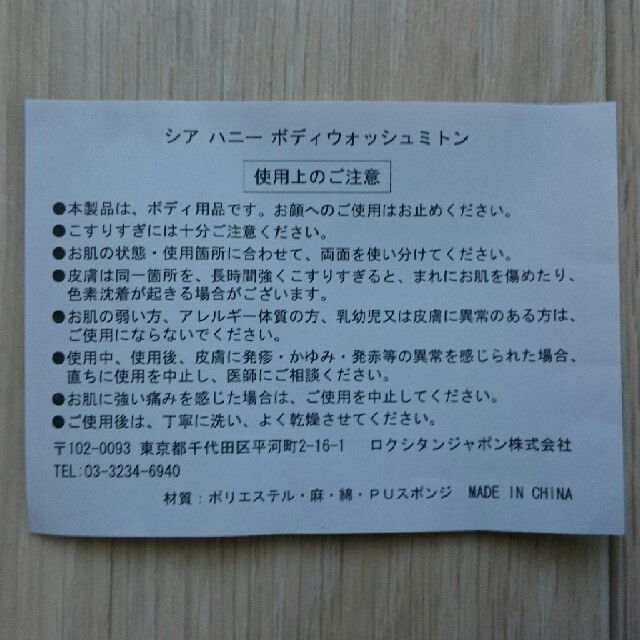 シア ハニー ボディウォッシュミトン
使用上のご注意
●本製品は、ボディ用品です。お顔へのご使用はお止めください。
●こすりすぎには十分ご注意ください。
●お肌の状態・使用箇所に合わせて、両面を使い分けてください。
●皮膚は同一箇所を、長時間強くこすりすぎると、まれにお肌を傷めたり、
色素沈着が起きる場合がございます。
●お肌の弱い方、アレルギー体質の方、乳幼児又は皮膚に異常のある方は、
ご使用にならないでください。
●使用中、使用後、皮膚に発疹・かゆみ・発赤等の異常を感じられた場合、
直ちに使用を中止し、医師にご相談ください。
●お肌に強い痛みを感じた場合は、ご使用を中止してください。
●ご使用後は、丁寧に洗い、よく乾燥させてください。
〒102-0093 東京都千代田区平河町2-16-1 ロクシタンジャポン株式会社
TEL:03-3234-6940
材質：ポリエステル・麻・綿・PUスポンジ MADE IN CHINA